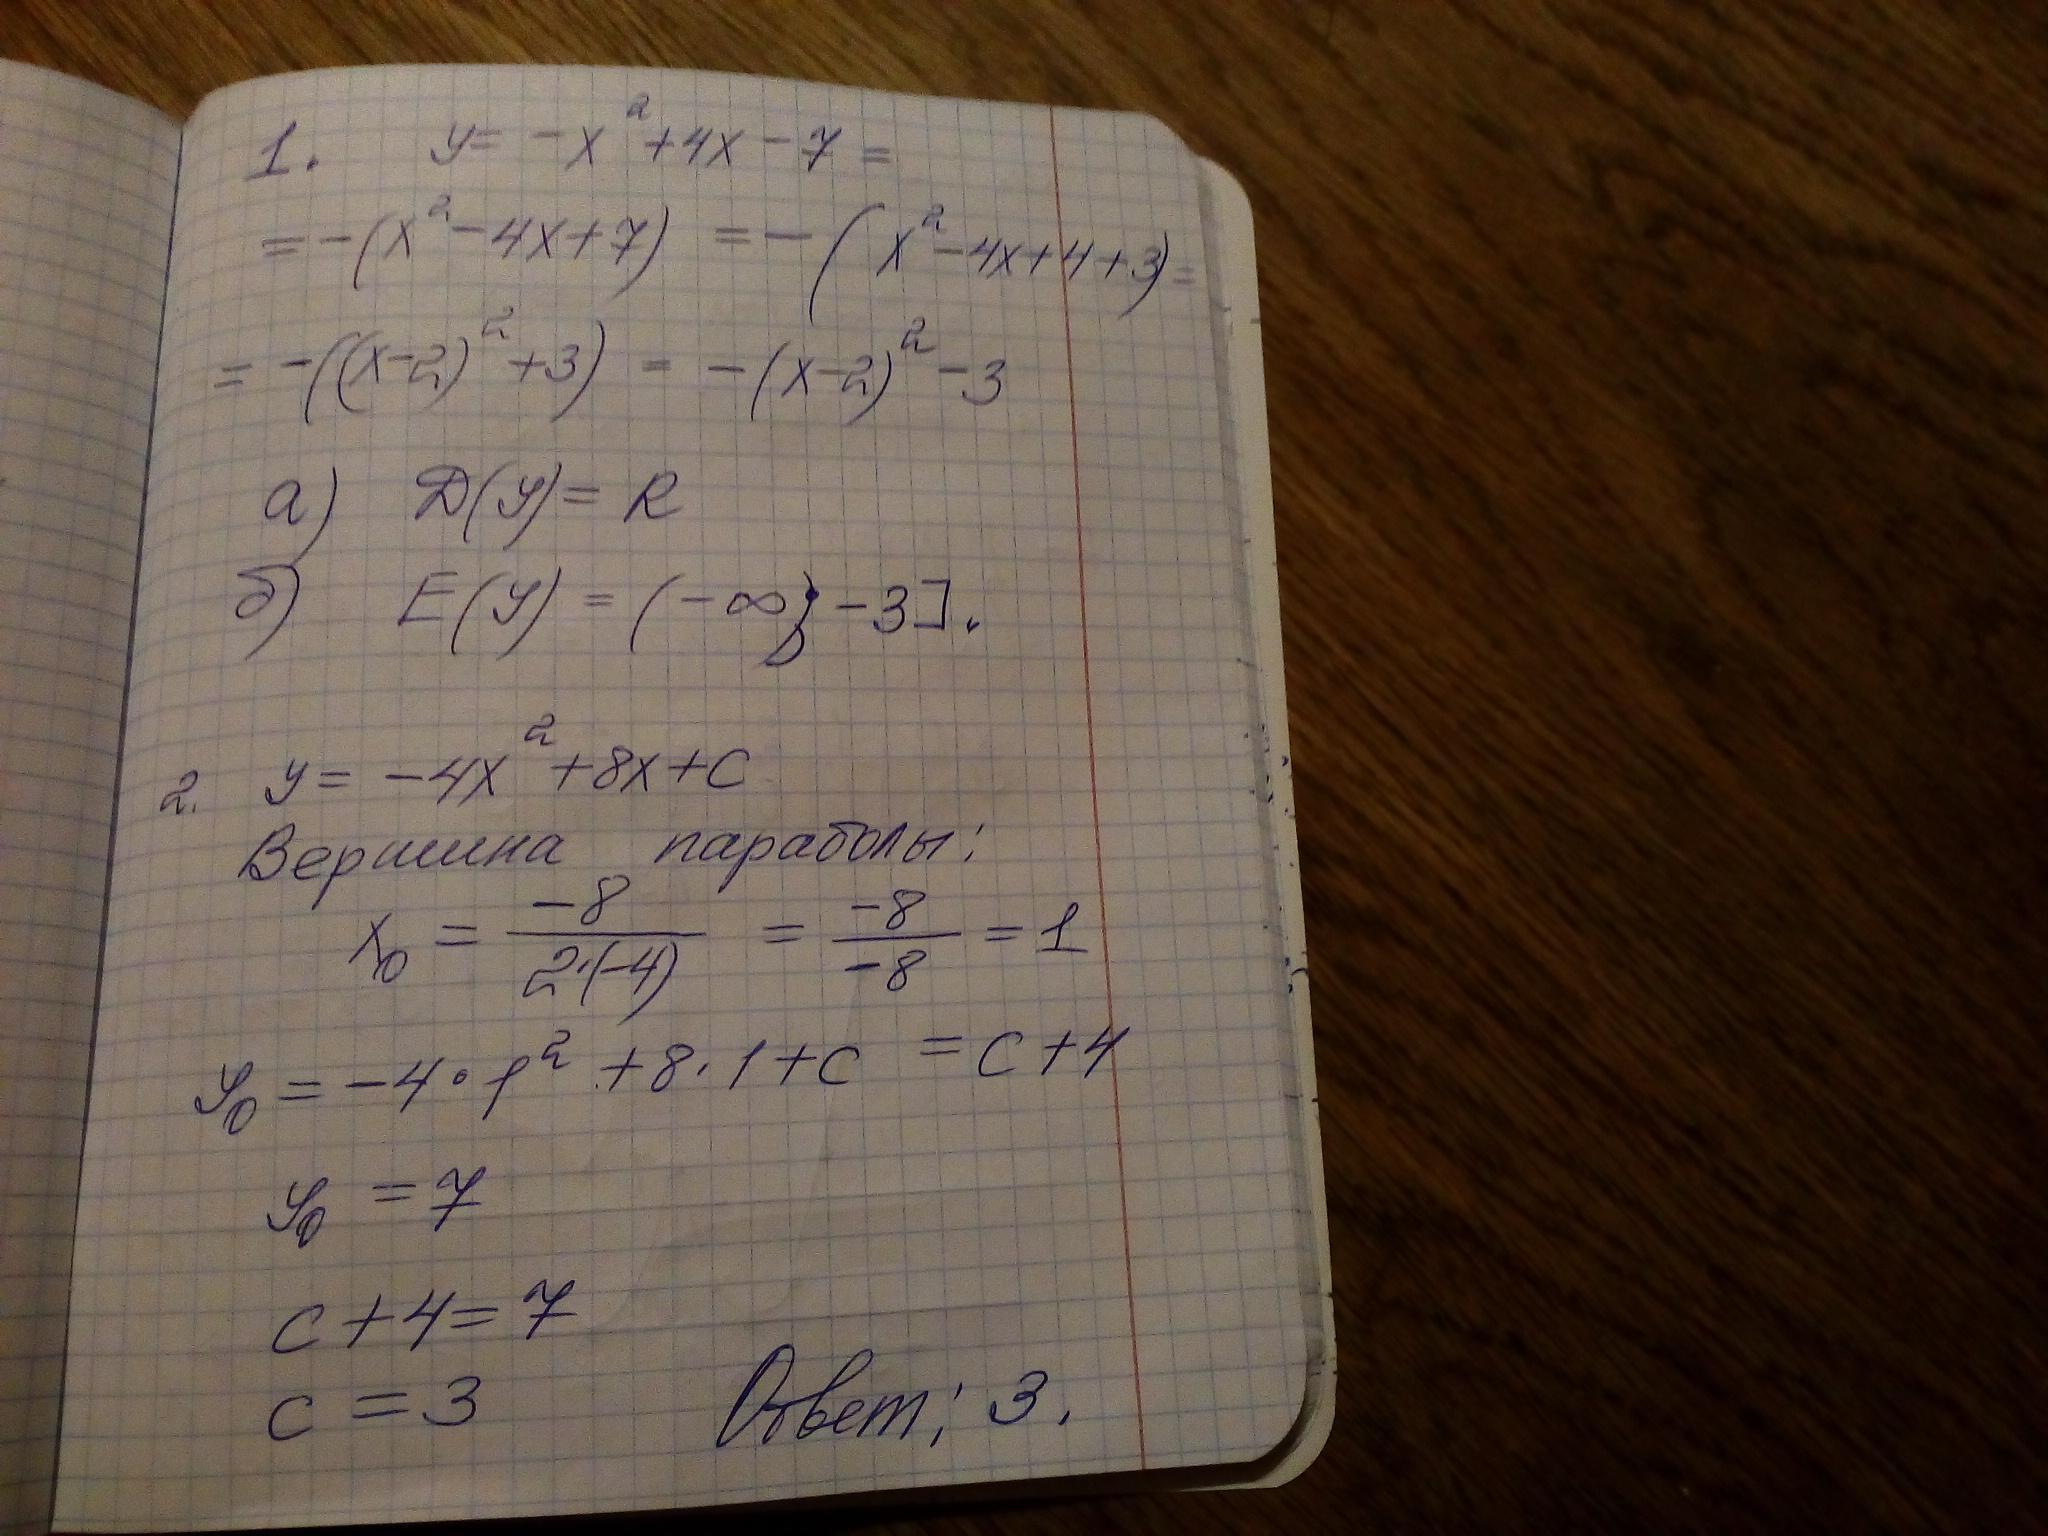 1. y = -x² + 4x - 7 =
= -(x² - 4x + 7) = -(x² - 4x + 4 + 3) =
= -((x-2)² + 3) = -(x-2)² - 3
а) D(y) = R
б) E(y) = (-∞; -3].
2. y = -4x² + 8x + c
Вершина параболы:
x₀ = -8/2·(-4) = -8/-8 = 1
y₀ = -4·1² + 8·1 + c = c + 4
y₀ = 7
c + 4 = 7
c = 3 Ответ: 3.